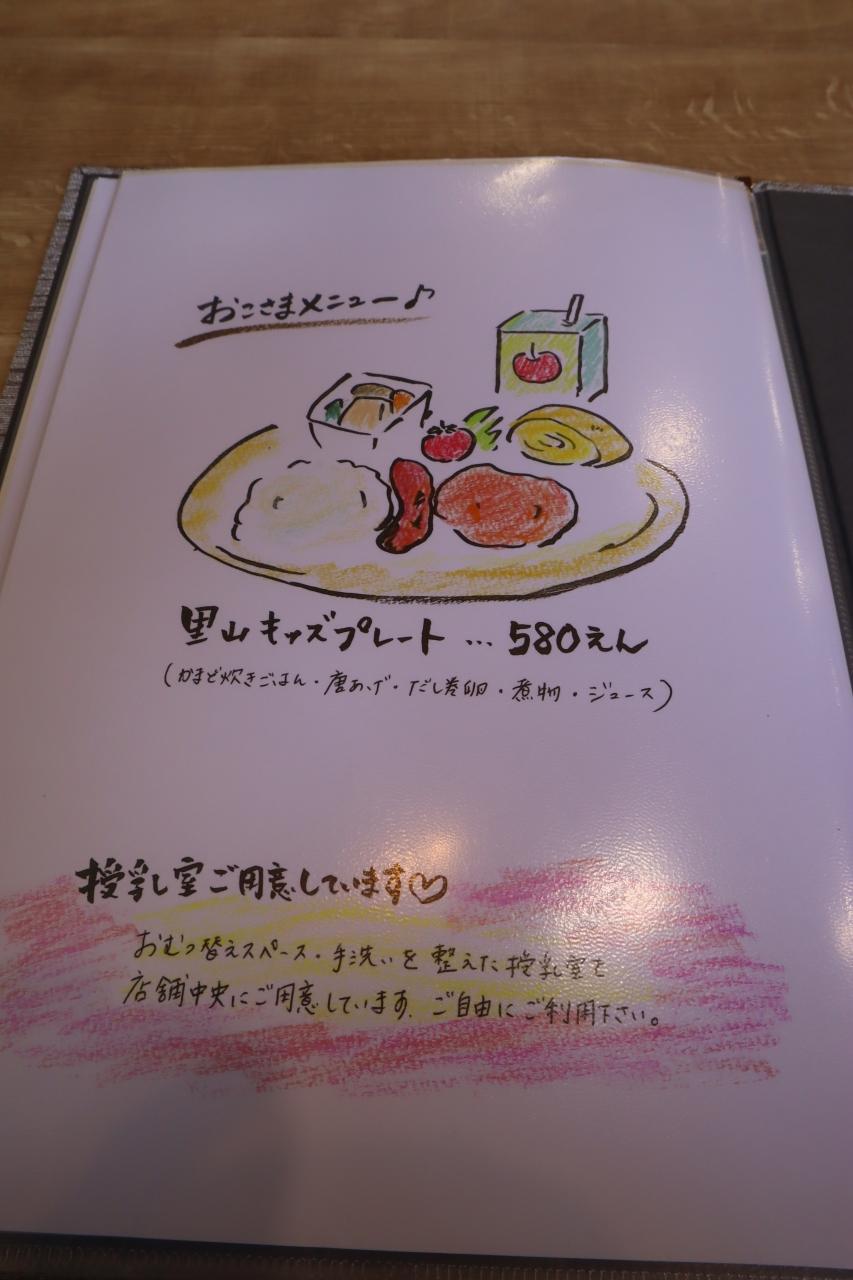 おこさまメニュー♪
里山キッズプレート … 580えん
(かまど炊きごはん・唐あげ・だし巻卵・煮物・ジュース)
授乳室ご用意しています♡
おむつ替えスペース・手洗いを整えた授乳室を
店舗中央にご用意しています。ご自由にご利用下さい。